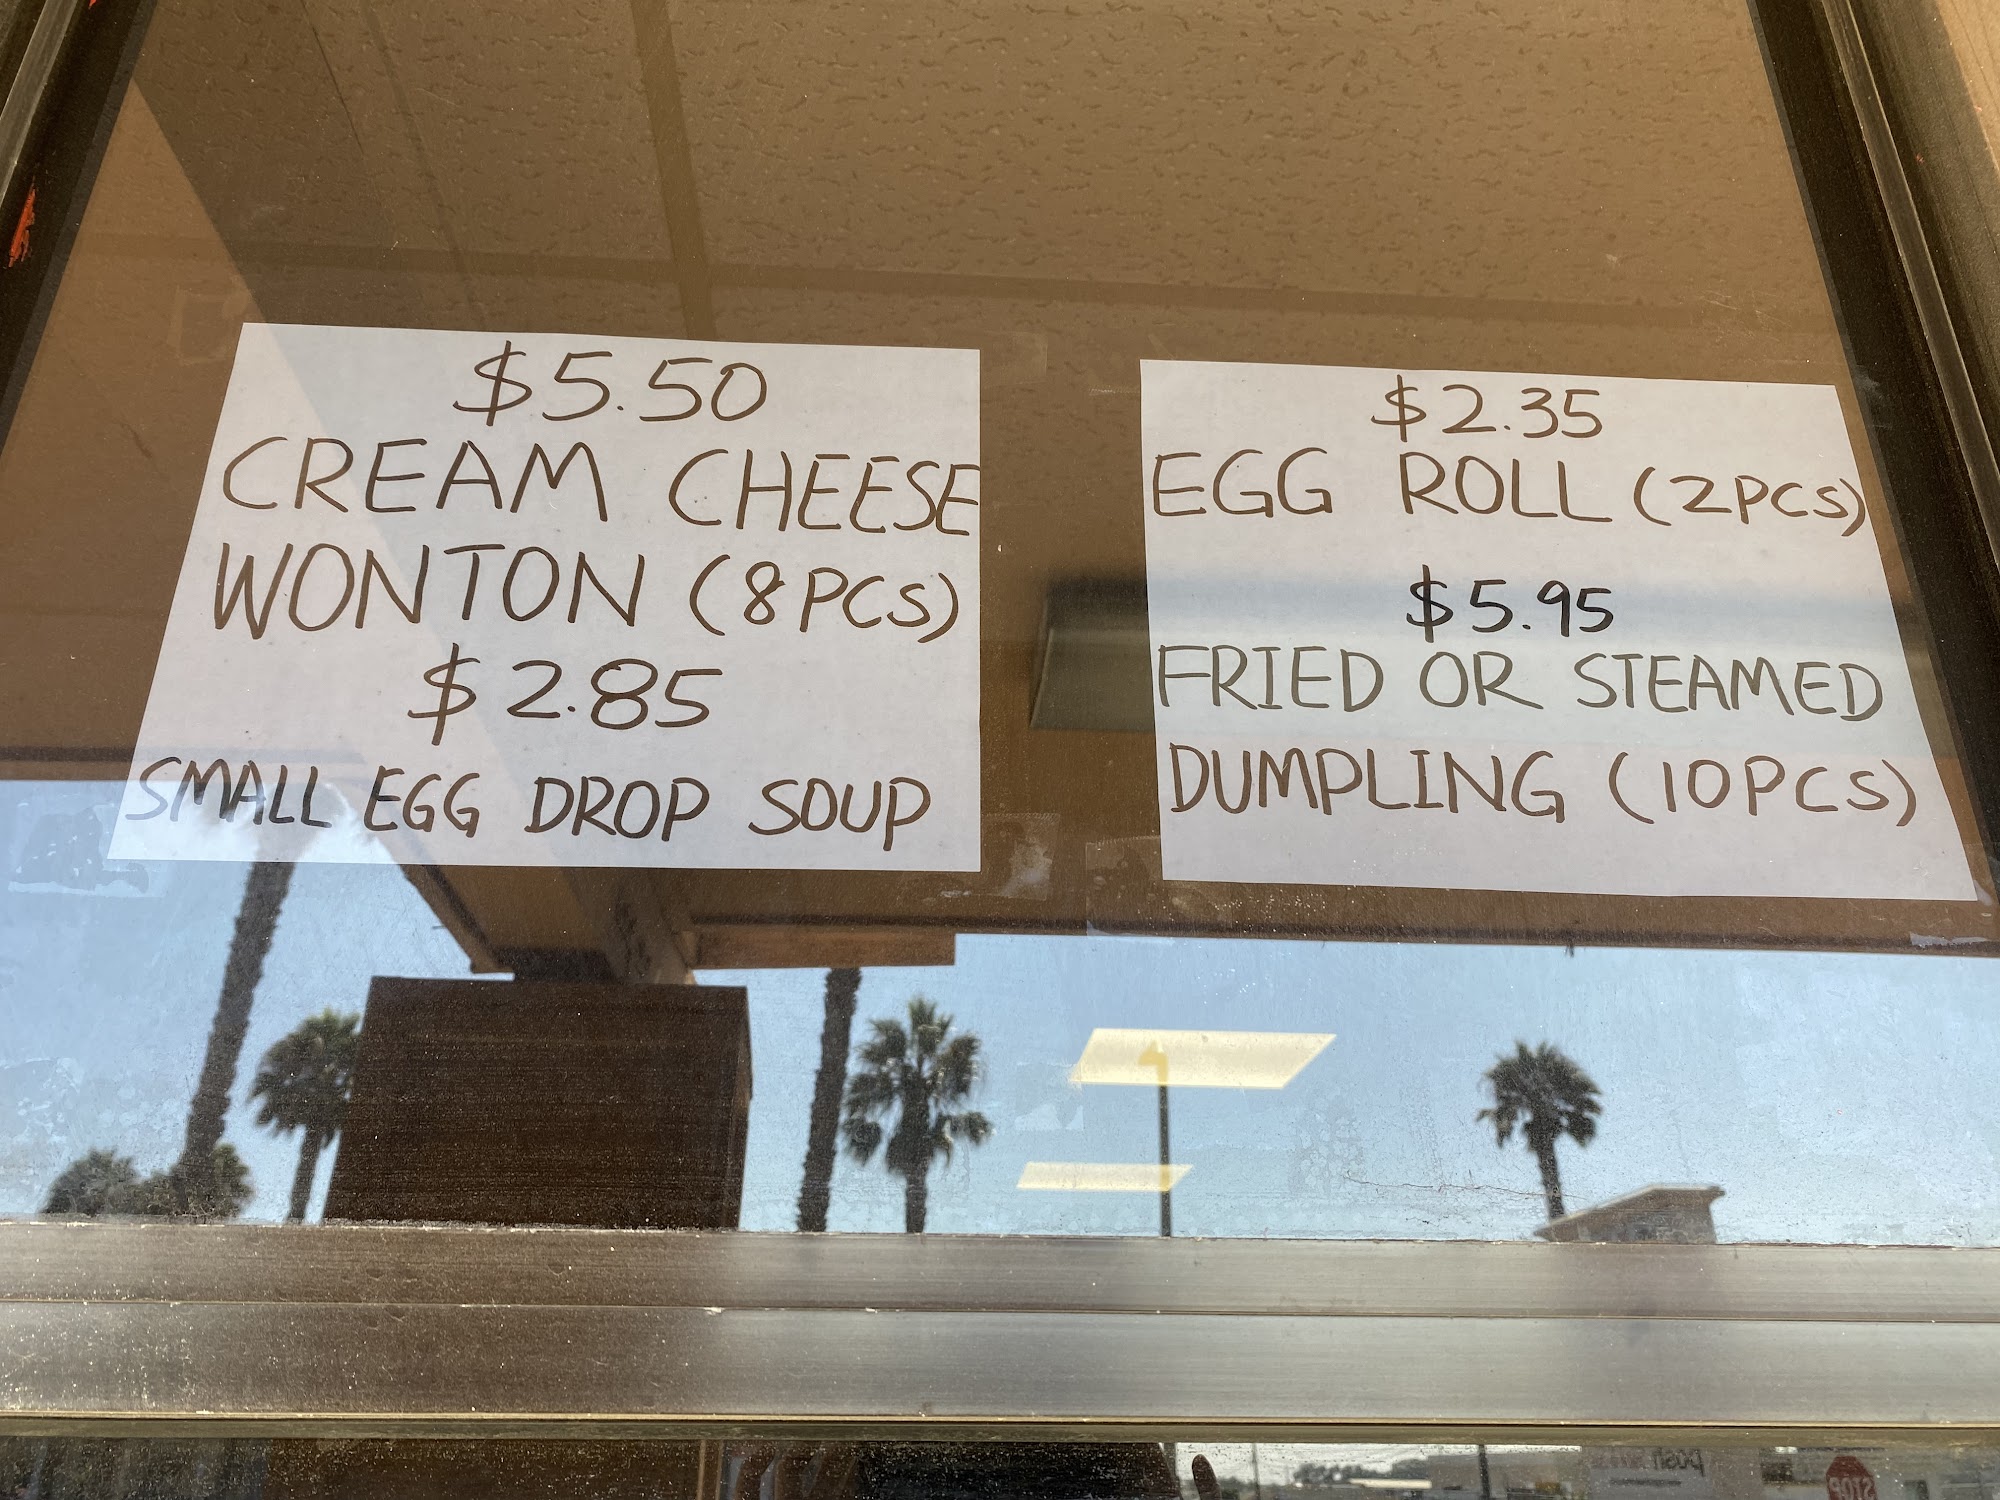 $5.50
CREAM CHEESE
WONTON (8PCS)
$2.85
SMALL EGG DROP SOUP
$2.35
EGG ROLL (2PCS)
$5.95
FRIED OR STEAMED
DUMPLING (10PCS)
STOP